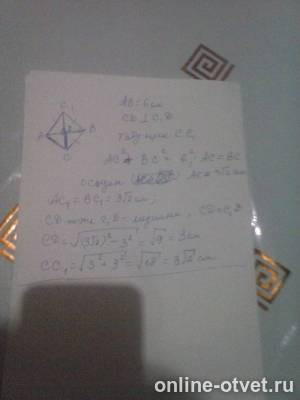 C₁
A
B
C
AB=6см
CD ⊥ C₁D
CC₁
AC² + BC² = 6²; AC=BC
осыдан AC=3√2см
AC₁ = BC₁ = 3√2см;
CD C₁D – медиана, CD=C₁D
CD=√(3√2)²-3² = √9 = 3см
CC₁=√3²+3² = √18 = 3√2 см
online-otvet.ru